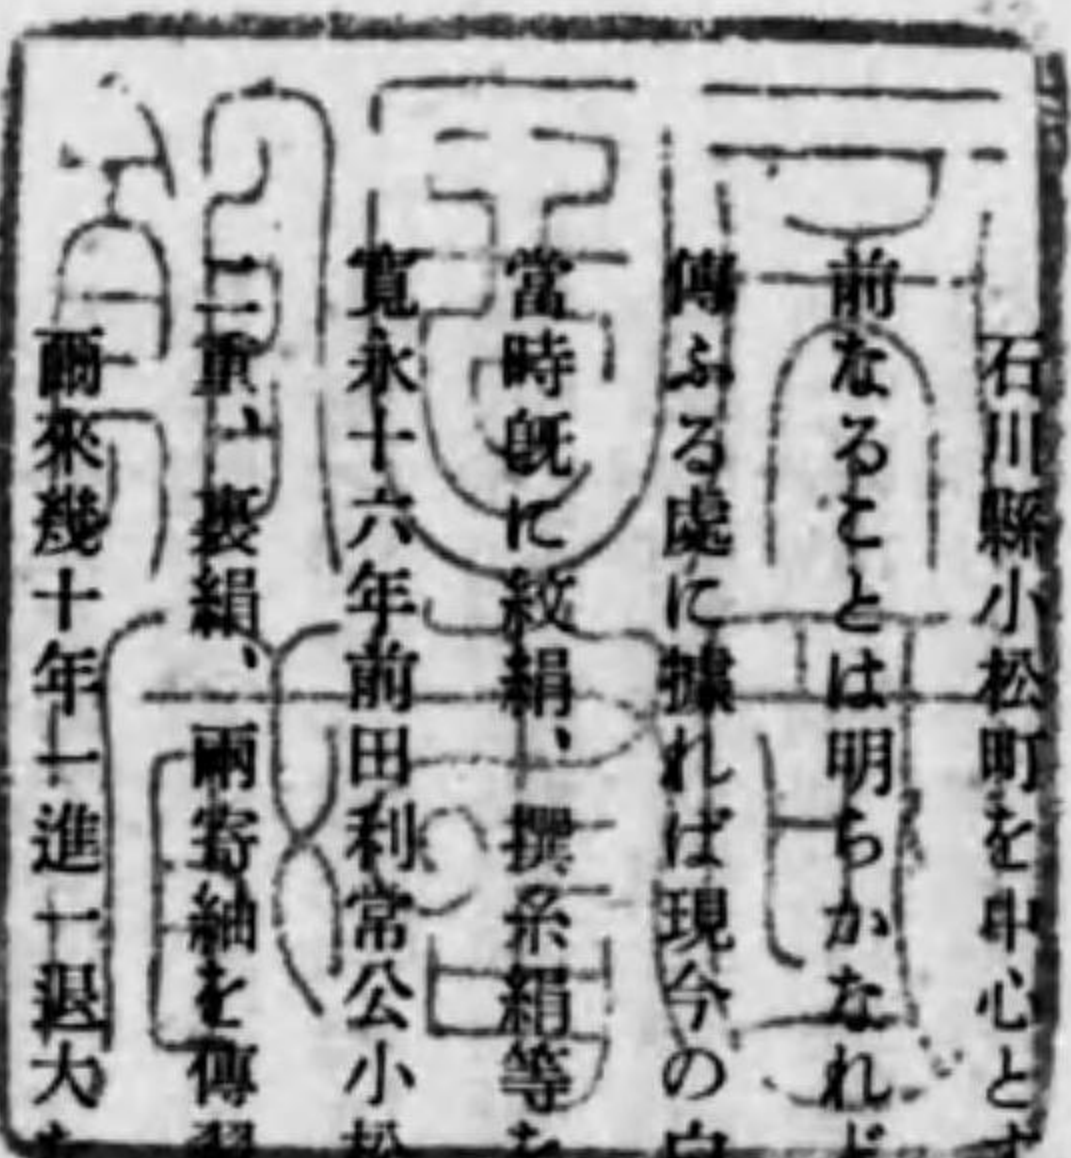 石川縣小松町を中心とす
前なることは明らかなれど
傳ふる處に據れば現今の
當時既に紋絹、撰糸絹等を
寛永十六年前田利常公小松
二重、裏絹、兩寄紬を傳習
爾來幾十年一進一退大